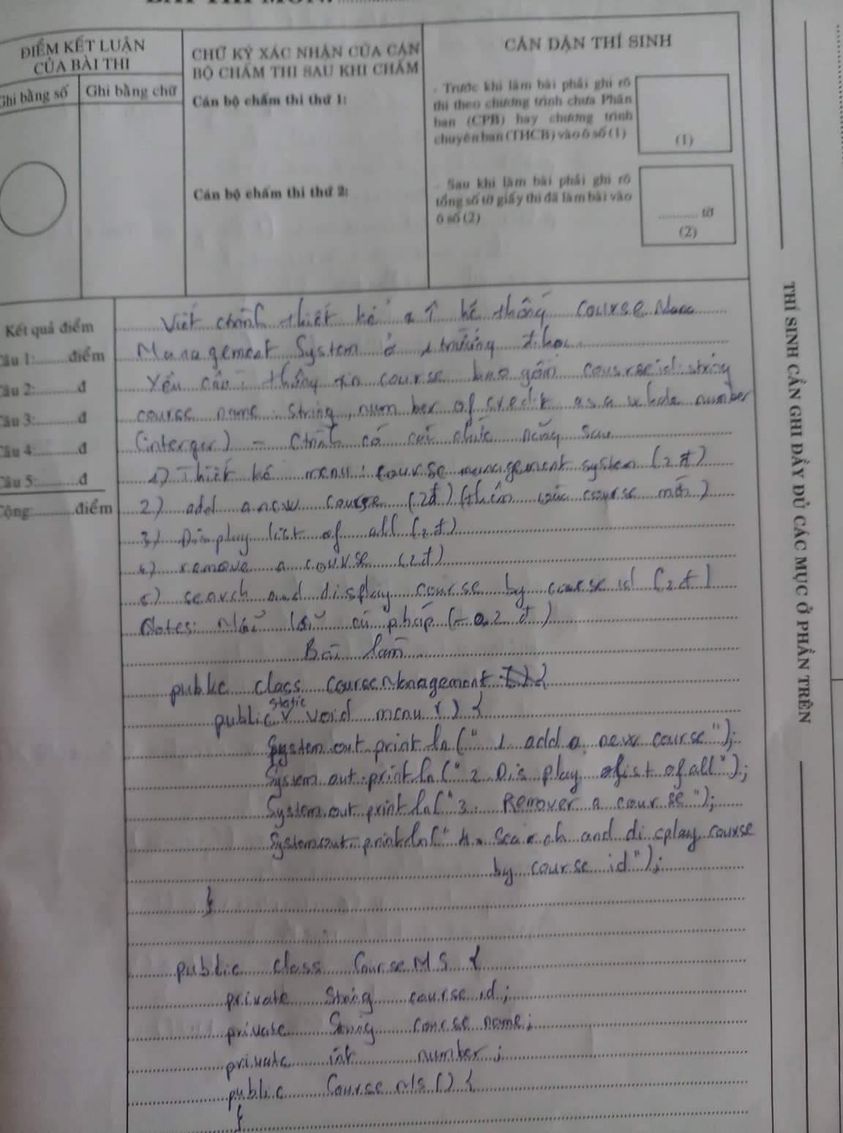 ĐIỂM KẾT LUẬN
CỦA BÀI THI
Ghi bằng số
Ghi bằng chữ
CHỮ KÝ XÁC NHẬN CỦA CÁN
BỘ CHẤM THI SAU KHI CHẤM
Cán bộ chấm thi thứ 1:
Cán bộ chấm thi thứ 2:
CĂN DẶN THÍ SINH
. Trước khi làm bài phải ghi rõ
thi theo chương trình chưa Phân
ban (CPB) hay chương trình
chuyên ban (THCB) vào ô số (1)
(1)
. Sau khi làm bài phải ghi rõ
tổng số tờ giấy thi đã làm bài vào
ô số (2)
.......... tờ
(2)
THÍ SINH CẦN GHI ĐẦY ĐỦ CÁC MỤC Ở PHẦN TRÊN
Kết quả điểm
Câu 1:.........điểm
Câu 2:.........đ
Câu 3:.........đ
Câu 4:.........đ
Câu 5:.........đ
Cộng:.........điểm
Viết chtrình thiết kế 1 hệ thống course
Management System ở 1 trường
Yêu cầu: thông tin course bao gồm courseid: string
course name: string, number of credit as a whole number
(interger) - Ctrình có các chức năng sau
1) Thiết kế menu: course management system (2đ)
2) add a new course (2đ) (thêm course mới)
3) Display list of all (2đ)
4) remove a course (2đ)
5) search and display course by course id (2đ)
Notes: Mỗi lỗi cú pháp (- 0.2 đ)
Bài làm
public class courseManagement {
public static void menu () {
System.out.println(" 1 add a new course");
System.out.println(" 2 Display of list of all");
System.out.println(" 3. Remover a course");
System.out.println(" 4. Search and display course
by course id");
}
public class CourseMS {
private String course id;
private String course name;
private int number;
public CourseMs () {
}